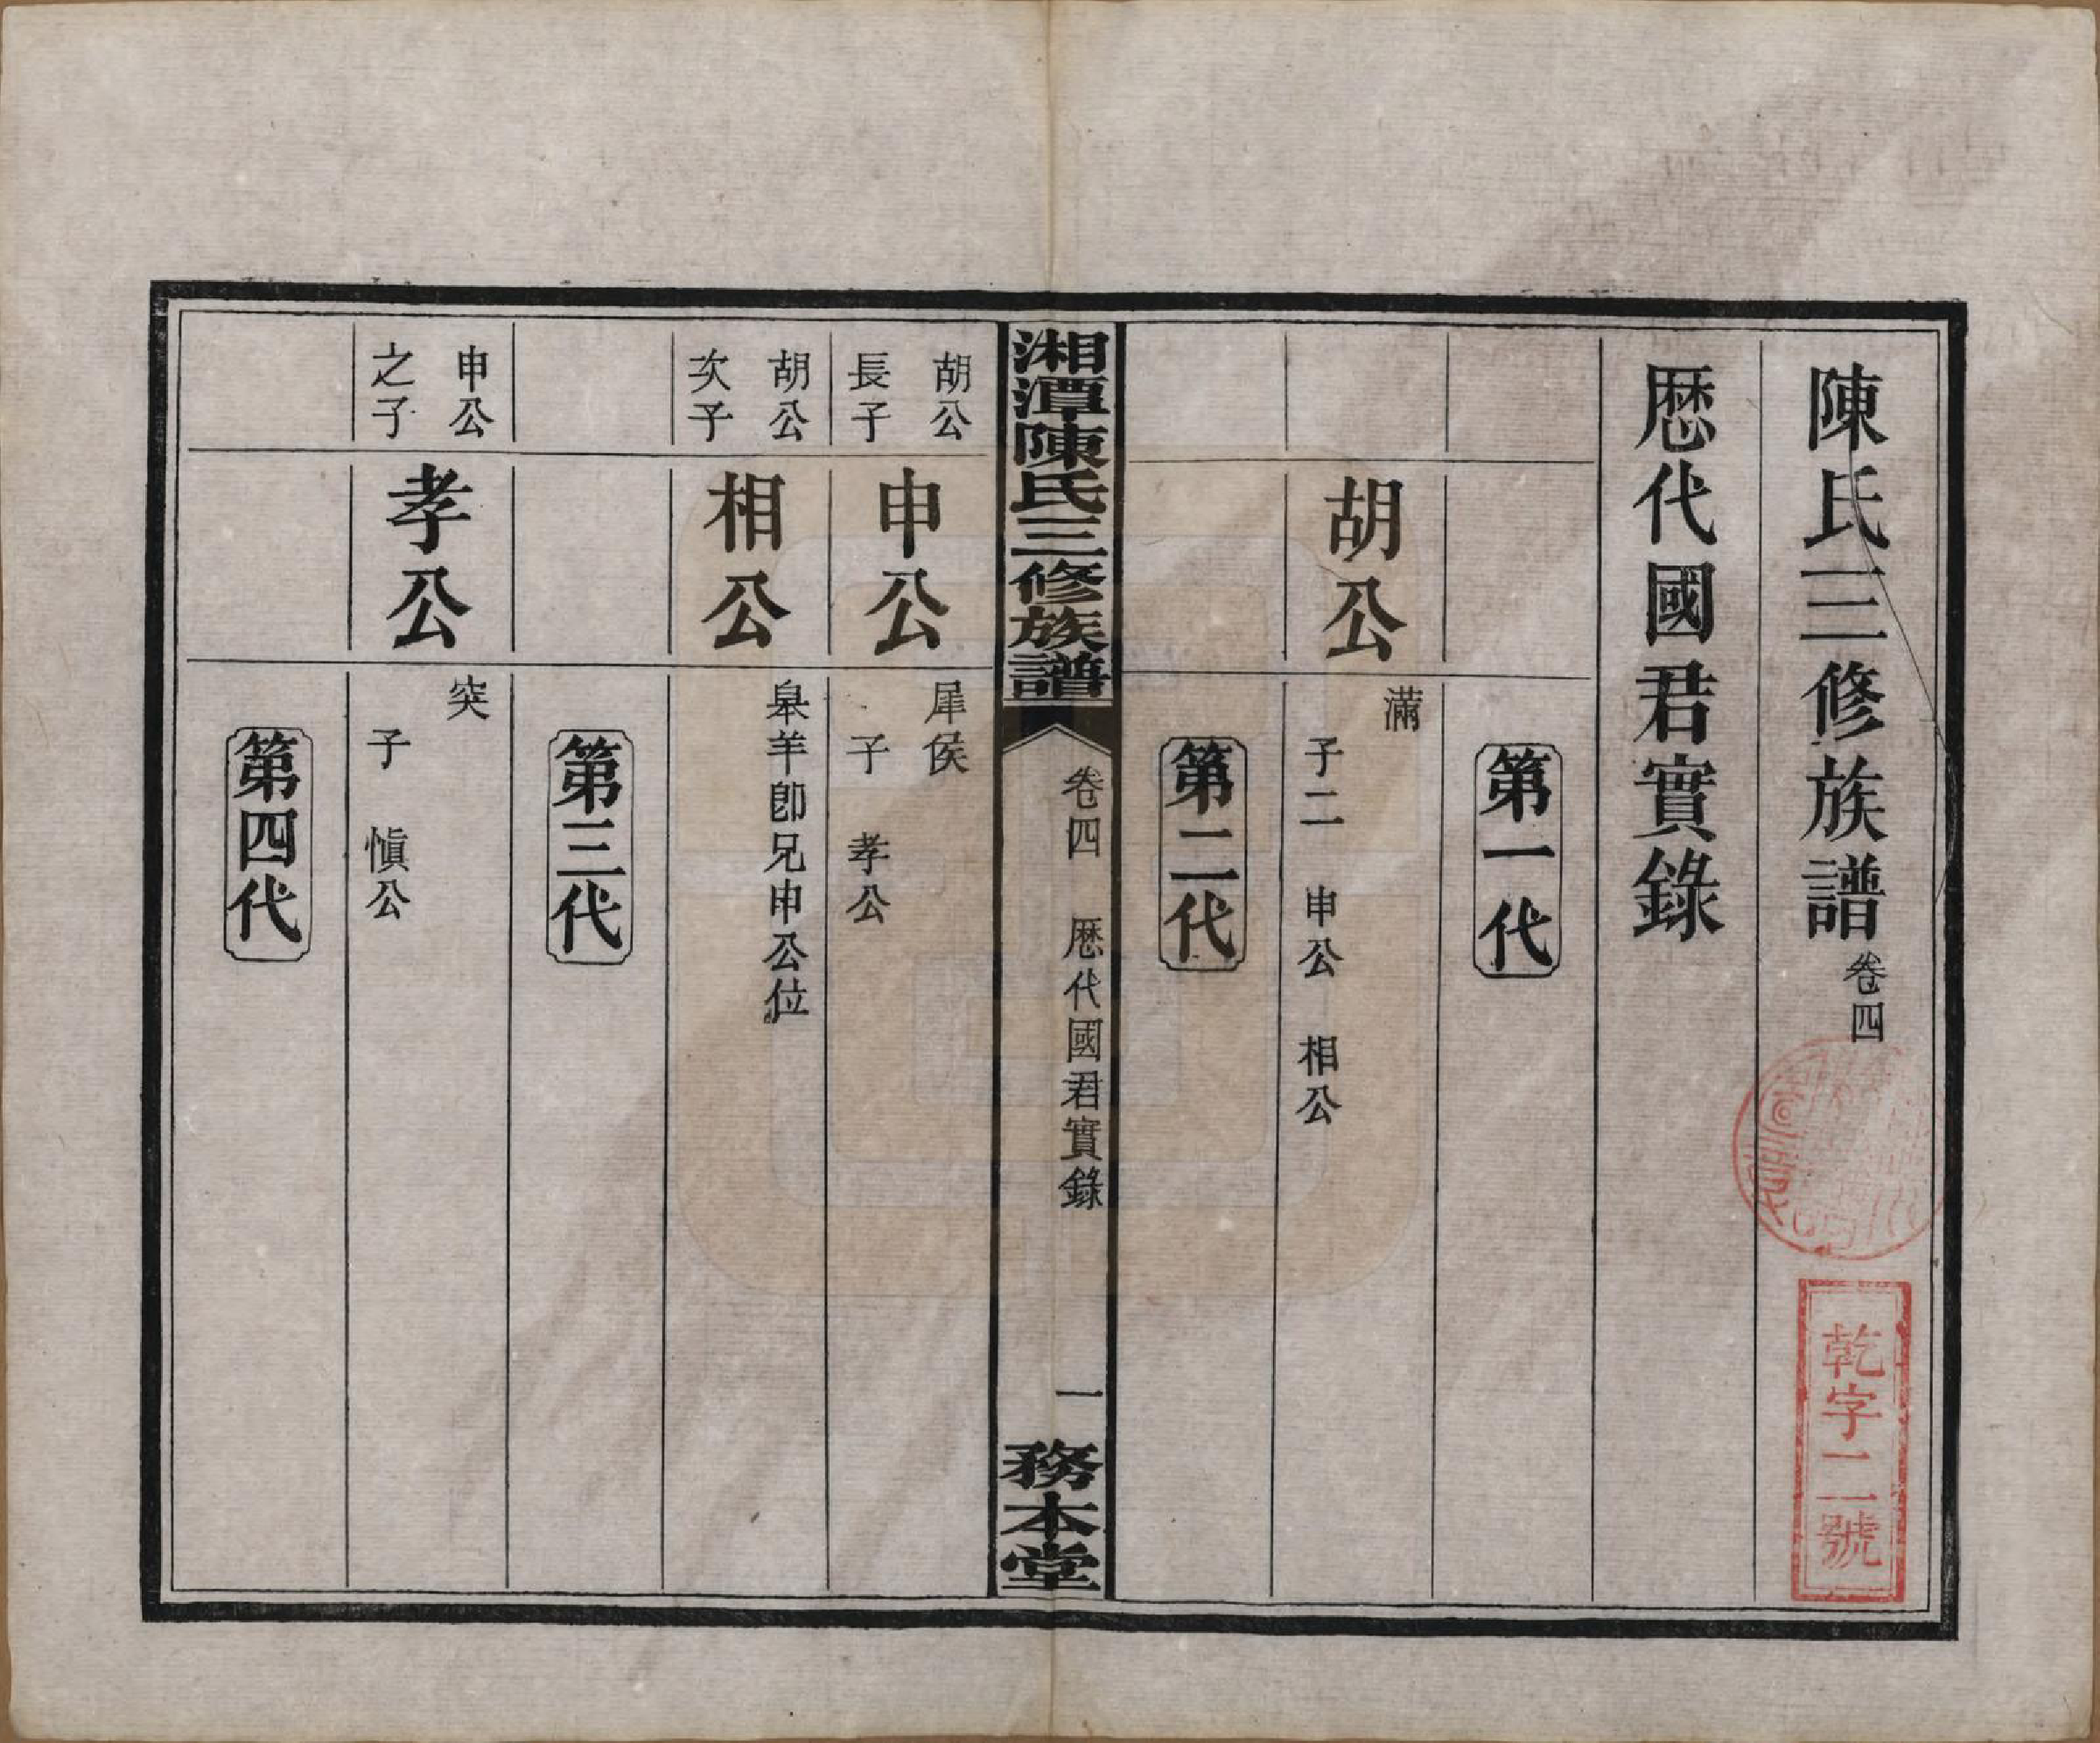 陳氏三修族譜卷四
歷代國君實錄
第一代
胡公
滿
子二　申公　相公
第二代
湘潭陳氏三修族譜
卷四　歷代國君實錄
一
務本堂
胡公
長子
申公
犀侯
子　孝公
胡公
次子
相公
皋羊卽兄申公位
第三代
申公
之子
孝公
突
子　慎公
第四代
乾字二號